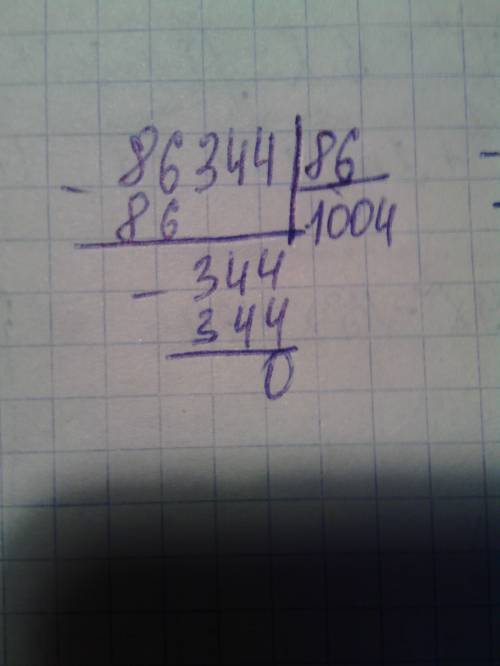 - 86344 | 86
86 1004
- 344
344
0